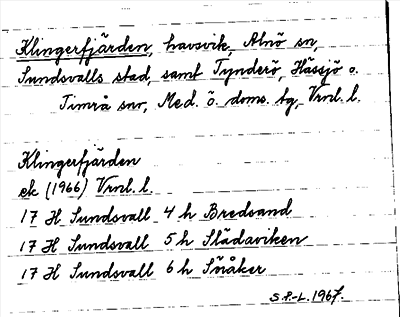 Klingerfjärden, havsvik, Alnö sn,
Sundsvalls stad, samt Tynderö, Hässjö o.
Timrå snr, Med. ö. doms. tg, Vrnl. l.
Klingerfjärden
ek (1966) Vrnl. l.
17 H Sundsvall 4 h Bredsand
17 H Sundsvall 5 h Slädaviken
17 H Sundsvall 6 h Söråker
S.P.-L. 1967.